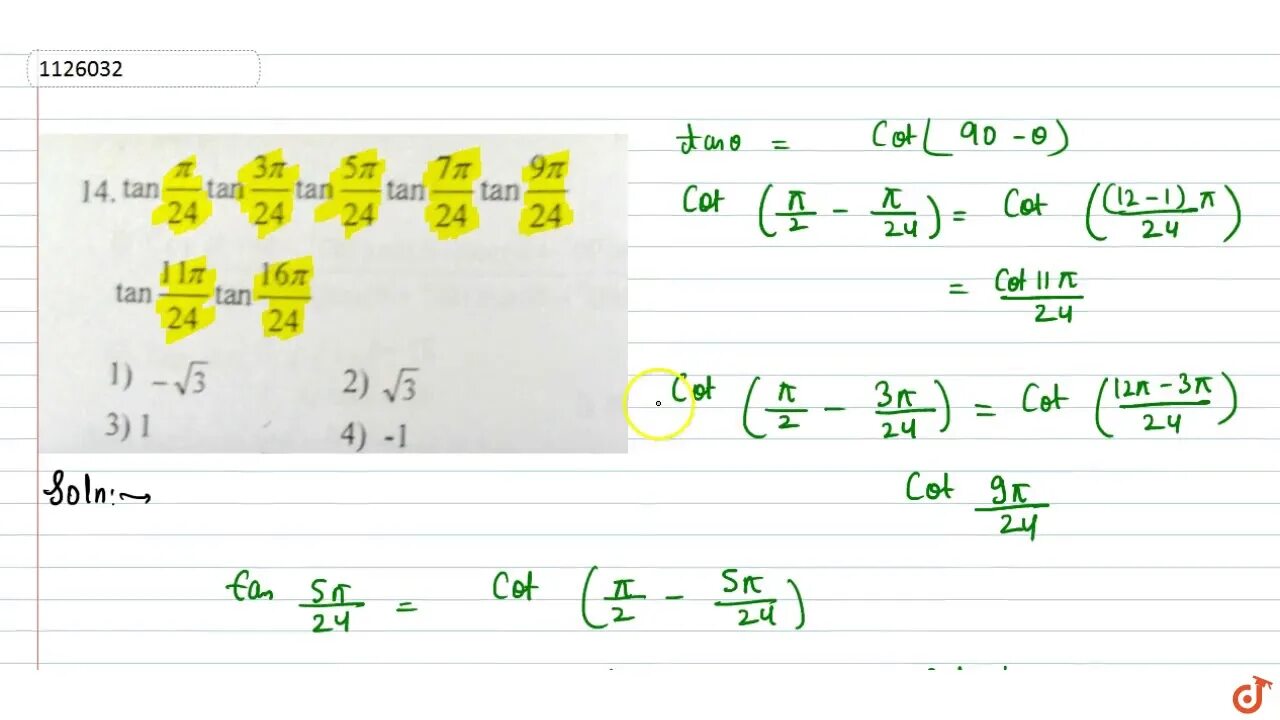 1126032
14. tan π/24 tan 3π/24 tan 5π/24 tan 7π/24 tan 9π/24
tan 11π/24 tan 16π/24
1) -√3 2) √3
3) 1 4) -1
tanθ = Cot( 90 - θ)
Cot (π/2 - π/24) = Cot ((12-1)π/24)
= Cot 11π/24
Cot (π/2 - 3π/24) = Cot (12π - 3π/24)
Cot 9π/24
Soln:→
tan 5π/24 = Cot (π/2 - 5π/24)